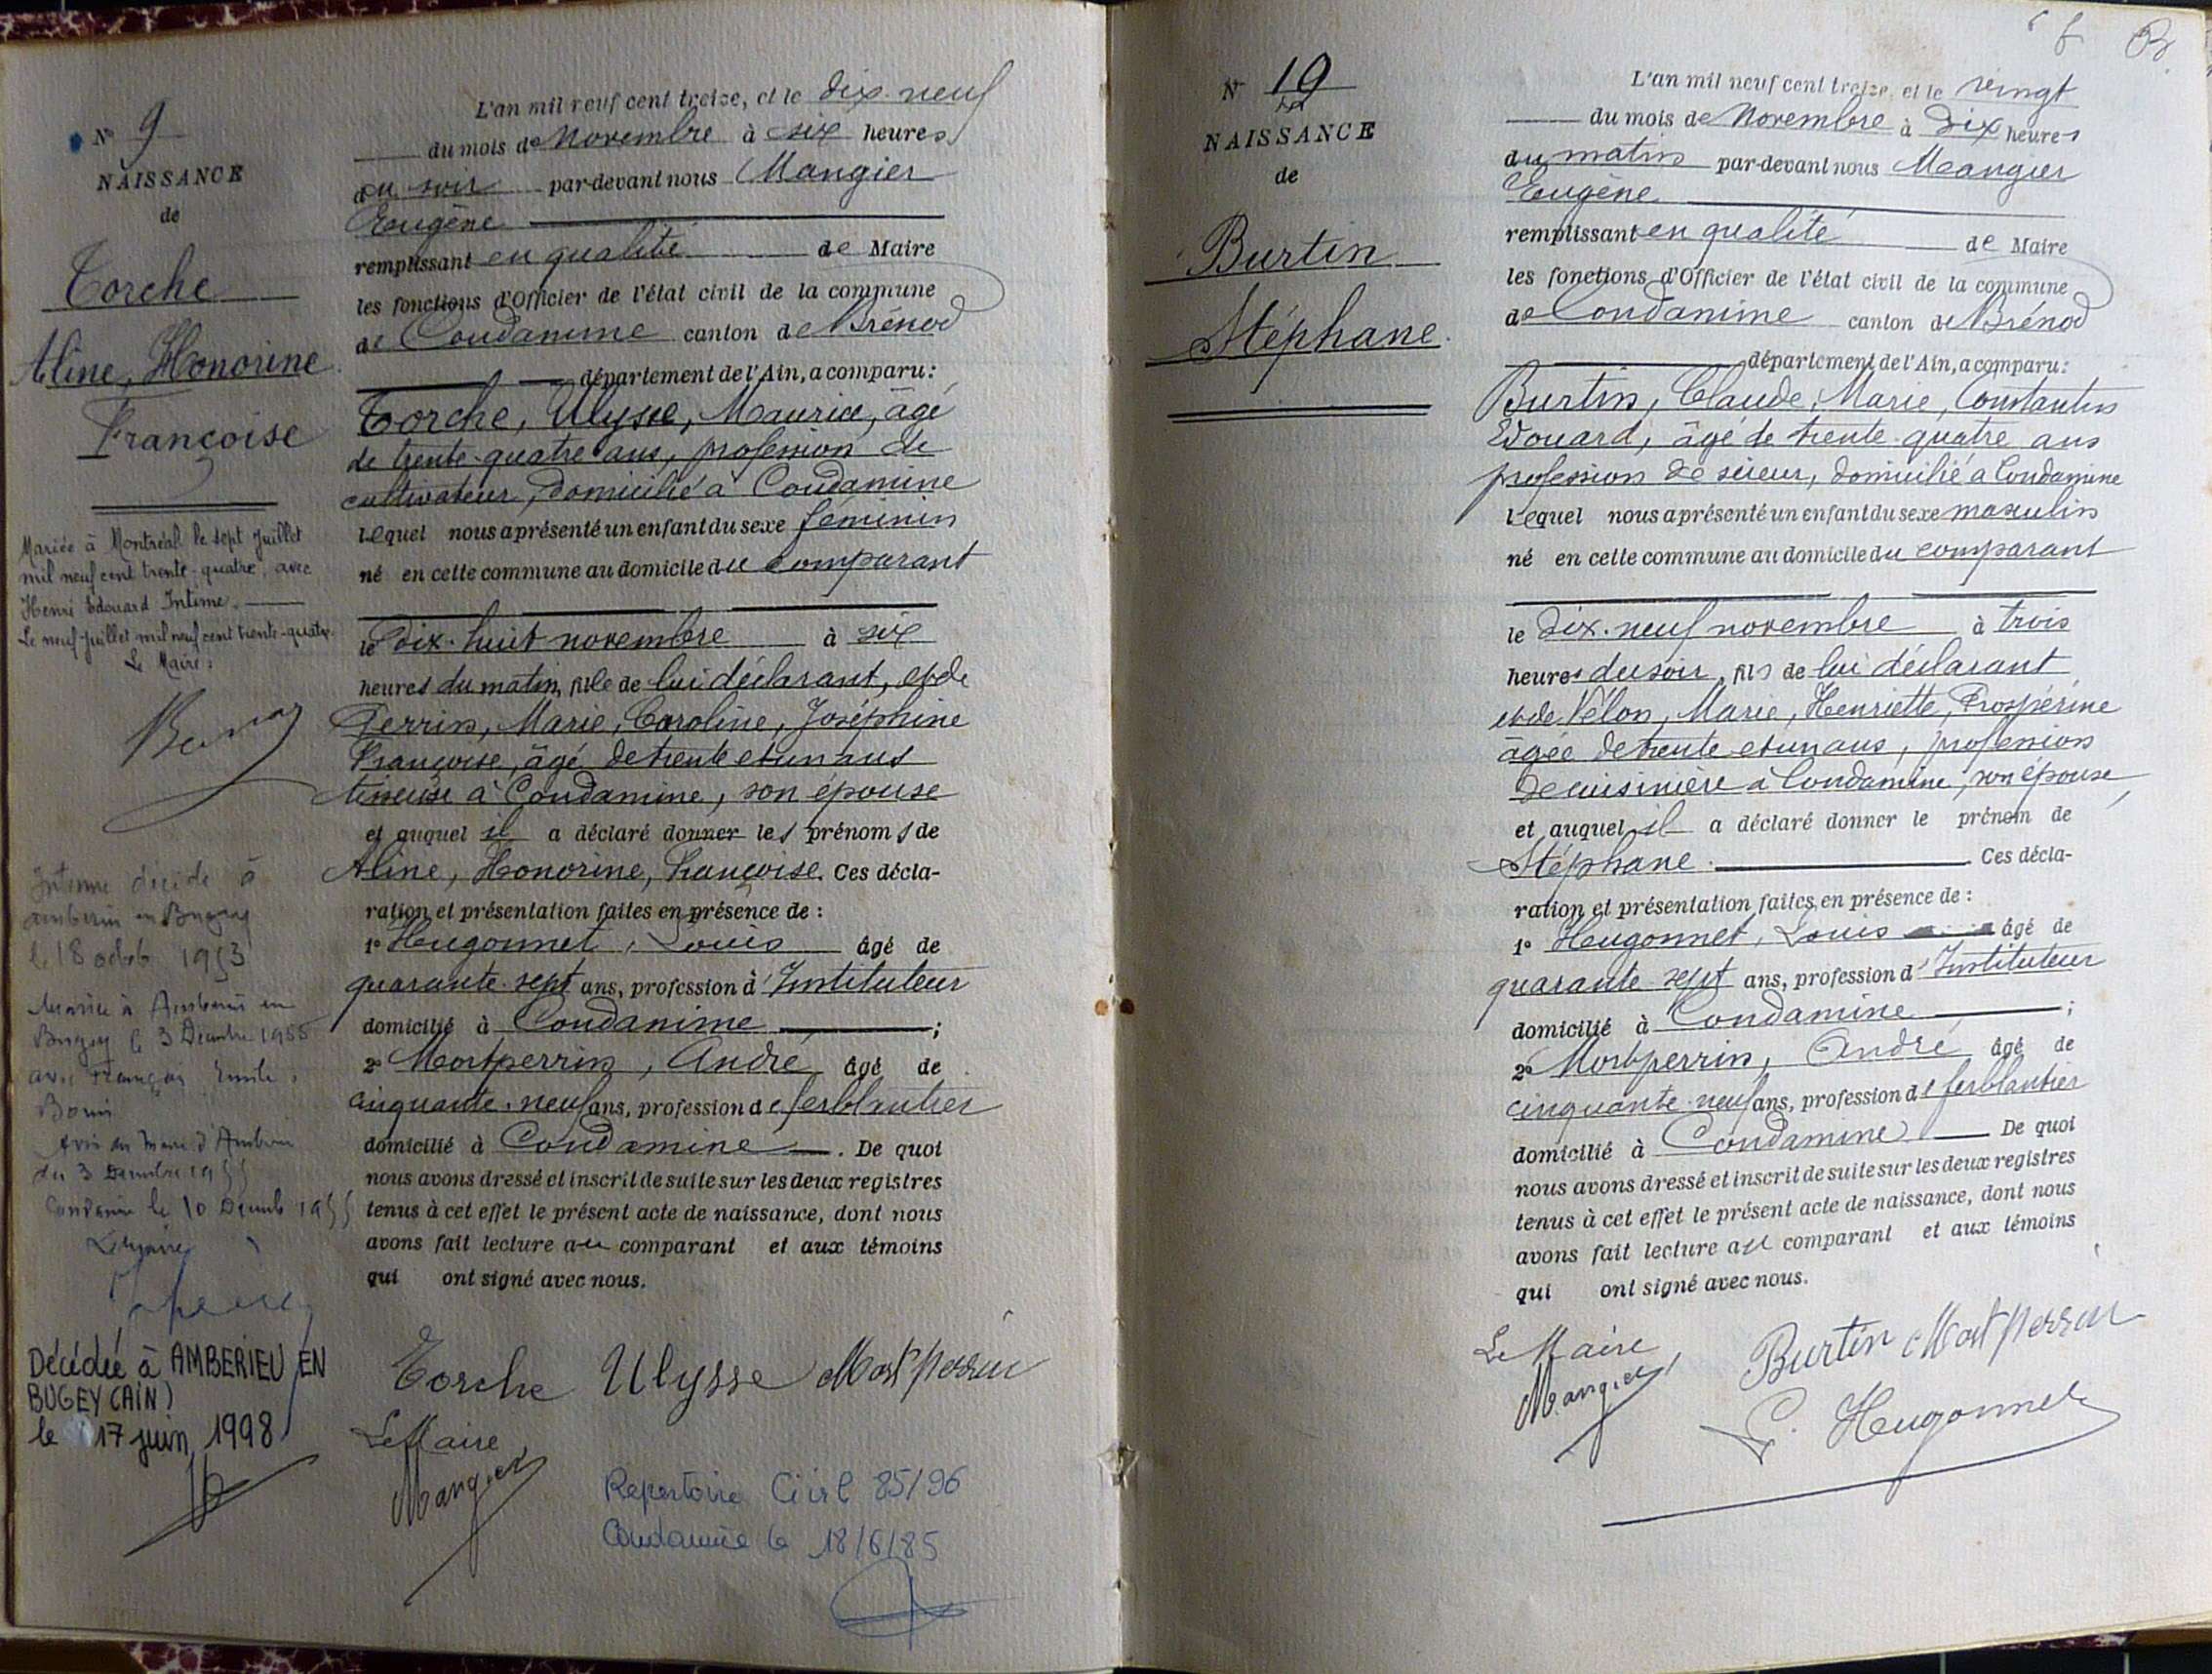 N° 9
NAISSANCE
de
Torche
Aline, Honorine
Françoise
Mariée à Montréal le sept Juillet
mil neuf cent trente-quatre, avec
Henri Edouard Intime.
Le neuf Juillet mil neuf cent trente-quatre.
Le Maire:
Intime décédé à
Amberieu en Bugey
le 18 octob 1953
Mariée à Amberieu en
Bugey le 3 Decembre 1955
avec François Emile
Avis du Maire d'Amberieu
du 3 Decembre 1955
Condamine le 10 Decemb 1955
Le Maire
Décédée à AMBERIEU EN
BUGEY (AIN)
le 17 juin 1998
L'an mil neuf cent treize, et le dix-neuf
du mois de Novembre à six heures
du soir par-devant nous Mangier
Eugène
remplissant en qualité de Maire
les fonctions d'Officier de l'état civil de la commune
de Condamine canton de Brénod
département de l'Ain, a comparu:
Torche, Ulysse, Maurice, âgé
de trente-quatre ans, profession de
cultivateur, domicilié à Condamine
lequel nous a présenté un enfant du sexe féminin
né en cette commune au domicile du comparant
le dix-huit novembre à six
heures du matin, fille de lui déclarant, et de
Perrin, Marie, Caroline, Joséphine
Françoise, âgé de trente et un ans
tisseuse à Condamine, son épouse
et auquel il a déclaré donner les prénoms de
Aline, Honorine, Françoise. Ces décla-
ration et présentation faites en présence de :
1° Hugonnet, Louis âgé de
quarante-sept ans, profession d'Instituteur
domicilié à Condamine ;
2° Montperrin, André âgé de
cinquante-neuf ans, profession de ferblantier
domicilié à Condamine . De quoi
nous avons dressé et inscrit de suite sur les deux registres
tenus à cet effet le présent acte de naissance, dont nous
avons fait lecture au comparant et aux témoins
qui ont signé avec nous.
Torche Ulysse Montperrin
Le Maire
Mangier
Repertoire Civil 85/96
Condamine le 18/6/85
N° 10
NAISSANCE
de
Burtin
Stéphane.
L'an mil neuf cent treize, et le vingt
du mois de Novembre à Dix heures
du matin par-devant nous Mangier
Eugène
remplissant en qualité de Maire
les fonctions d'Officier de l'état civil de la commune
de Condamine canton de Brénod
département de l'Ain, a comparu:
Burtin, Claude, Marie, Constantin
Edouard, âgé de trente-quatre ans
profession de scieur, domicilié à Condamine
lequel nous a présenté un enfant du sexe masculin
né en cette commune au domicile du comparant
le dix-neuf novembre à trois
heures du soir, fils de lui déclarant
et de Vélon, Marie, Henriette, Prospérine
âgée de trente et un ans, profession
de cuisinière à Condamine, son épouse
et auquel il a déclaré donner le prénom de
Stéphane. Ces décla-
ration et présentation faites en présence de :
1° Hugonnet, Louis âgé de
quarante-sept ans, profession d'Instituteur
domicilié à Condamine ;
2° Montperrin, André âgé de
cinquante-neuf ans, profession de ferblantier
domicilié à Condamine De quoi
nous avons dressé et inscrit de suite sur les deux registres
tenus à cet effet le présent acte de naissance, dont nous
avons fait lecture au comparant et aux témoins
qui ont signé avec nous.
Le Maire
Mangier
Burtin Montperrin
L. Hugonnet